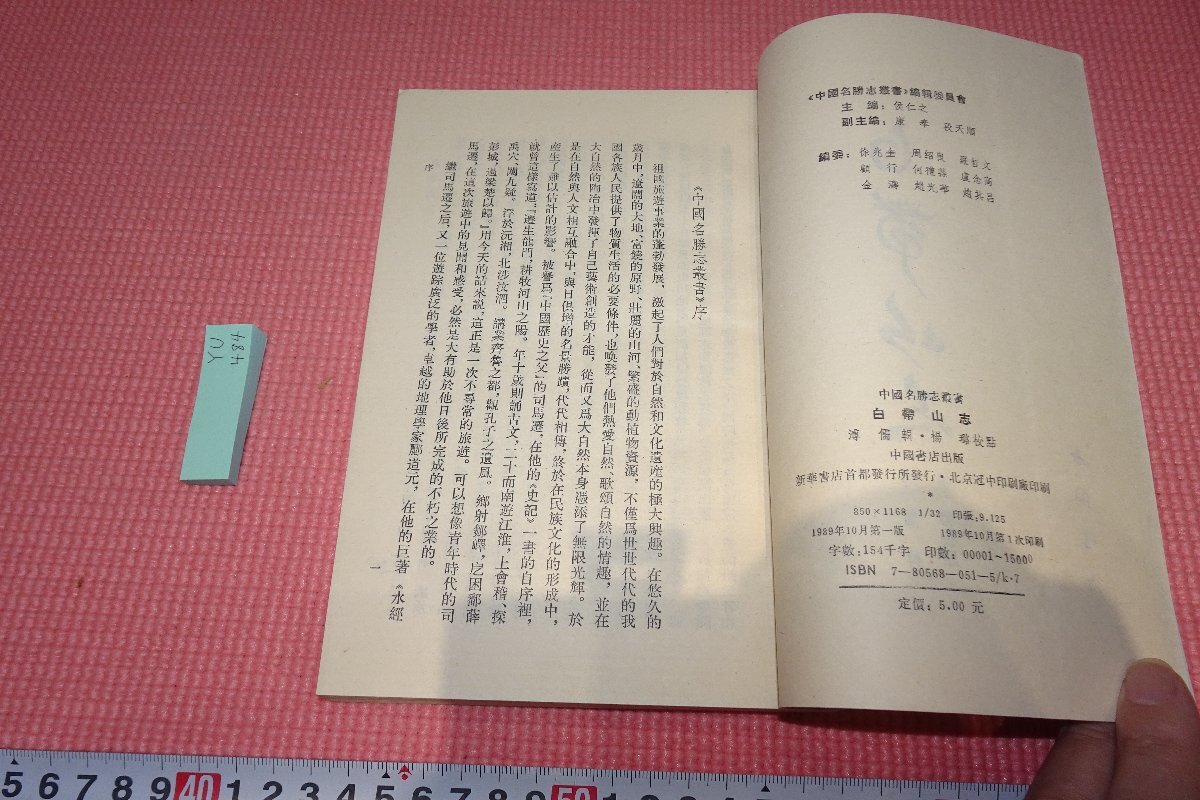 《中國名勝志叢書》編輯委員會
主編：侯仁之
副主編：康奉 段天順
編委：徐兆奎 周紹良 羅哲文
顧行 何禮蓀 盧念高
金濤 趙光華 趙其昌
中國名勝志叢書
白帶山志
溥儒輯·楊璐校點
中國書店出版
新華書店首都發行所發行·北京冠中印刷廠印刷
*
850×1168 1/32 印張：9.125
1989年10月第一版 1989年10月第1次印刷
字數：154千字 印數：00001～15000
ISBN 7—80568—051—5/k·7
定價：5.00 元
《中國名勝志叢書》序
祖國旅遊事業的蓬勃發展，激起了人們對於自然和文化遺產的極大興趣。在悠久的
歲月中，遼闊的大地、富饒的原野、壯麗的山河、繁盛的動植物資源，不僅爲世世代代的我
國各族人民提供了物質生活的必要條件，也喚發了他們熱愛自然、歌頌自然的情趣，並在
大自然的陶冶中發揮了自己藝術創造的才能，從而又爲大自然本身憑添了無限光輝。於
是在自然與人文相互融合中，與日俱增的名景勝蹟，代代相傳，終於在民族文化的形成中，
產生了難以估計的影響。被譽爲『中國歷史之父』的司馬遷，在他的《史記》一書的自序裡，
就曾這樣寫道：『遷生龍門，耕牧河山之陽。年十歲則誦古文，二十而南遊江淮，上會稽、探
禹穴、闚九疑，浮於沅湘，北涉汶泗。講業齊魯之都，觀孔子之遺風。鄉射鄒嶧，戹困鄱薛
彭城，過梁楚以歸。』用今天的話來說，這正是一次不尋常的旅遊。可以想像青年時代的司
馬遷，在這次旅遊中的見聞和感受，必然是大有助於他日後所完成的不朽之業的。
繼司馬遷之后，又一位遊踪廣泛的學者，卓越的地理學家酈道元，在他的巨著《水經
序
一
484
5 6 7 8 9 40 1 2 3 4 5 6 7 8 9 50 1 2 3 4 5 6 7 8